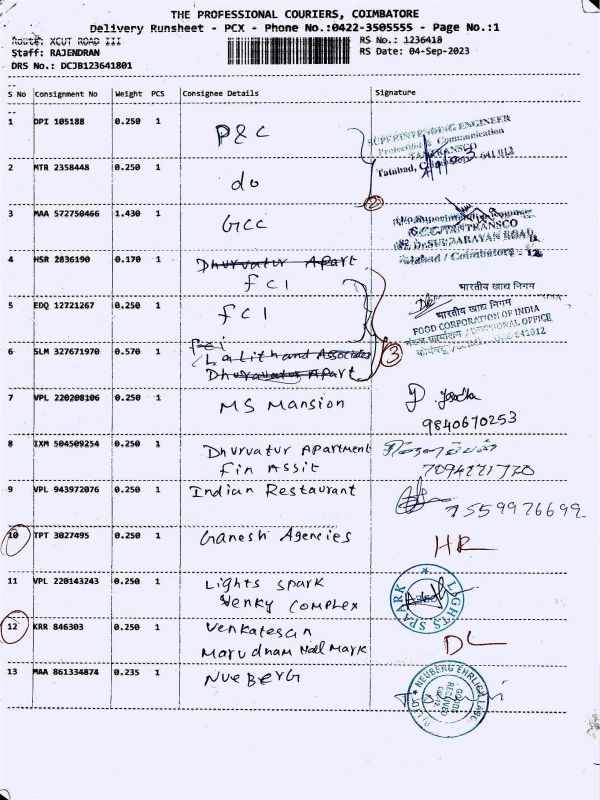 THE PROFESSIONAL COURIERS, COIMBATORE
Delivery Runsheet - PCX - Phone No.:0422-3505555 - Page No.:1
Route: XCUT ROAD III
RS No.: 1236418
Staff: RAJENDRAN
RS Date: 04-Sep-2023
DRS No.: DCJB123641801
S No Consignment No Weight PCS Consignee Details Signature
1 DPI 105188 0.250 1 P&C
SUPERINTENDING ENGINEER
Protection & Communication
TANTRANSCO
Tatabad, 641 012
2 MTR 2358448 0.250 1 do
2
3 MAA 572750466 1.430 1 GCC
GCC/TANTRANSCO
Tatabad / Coimbatore - 12
4 HSR 2836190 0.170 1 Dhurvatur Apart
FCI
5 EDQ 12721267 0.250 1 FCI
भारतीय खाद्य निगम
भारतीय खाद्य निगम
FOOD CORPORATION OF INDIA
DIVISIONAL OFFICE
641012
6 SLM 327671970 0.570 1 fci
Lalithand Associates
Dhurvatur Apart
3
7 VPL 220208106 0.250 1 MS Mansion
9840670253
8 IXM 504509254 0.250 1 Dhurvatur Apartment
Fin Assit
9 VPL 943972076 0.250 1 Indian Restaurant
7559976699
10 TPT 3027495 0.250 1 Ganesh Agencies
HR
11 VPL 220143243 0.250 1 Lights Spark
Venky Complex
LIGHTS SPAARK
12 KRR 846303 0.250 1 Venkatesan
Marudnam Hall Mark
DL
13 MAA 861334874 0.235 1 NueBerG
NEUBERG EHRLICH LAB
GOODS
RECEIVED